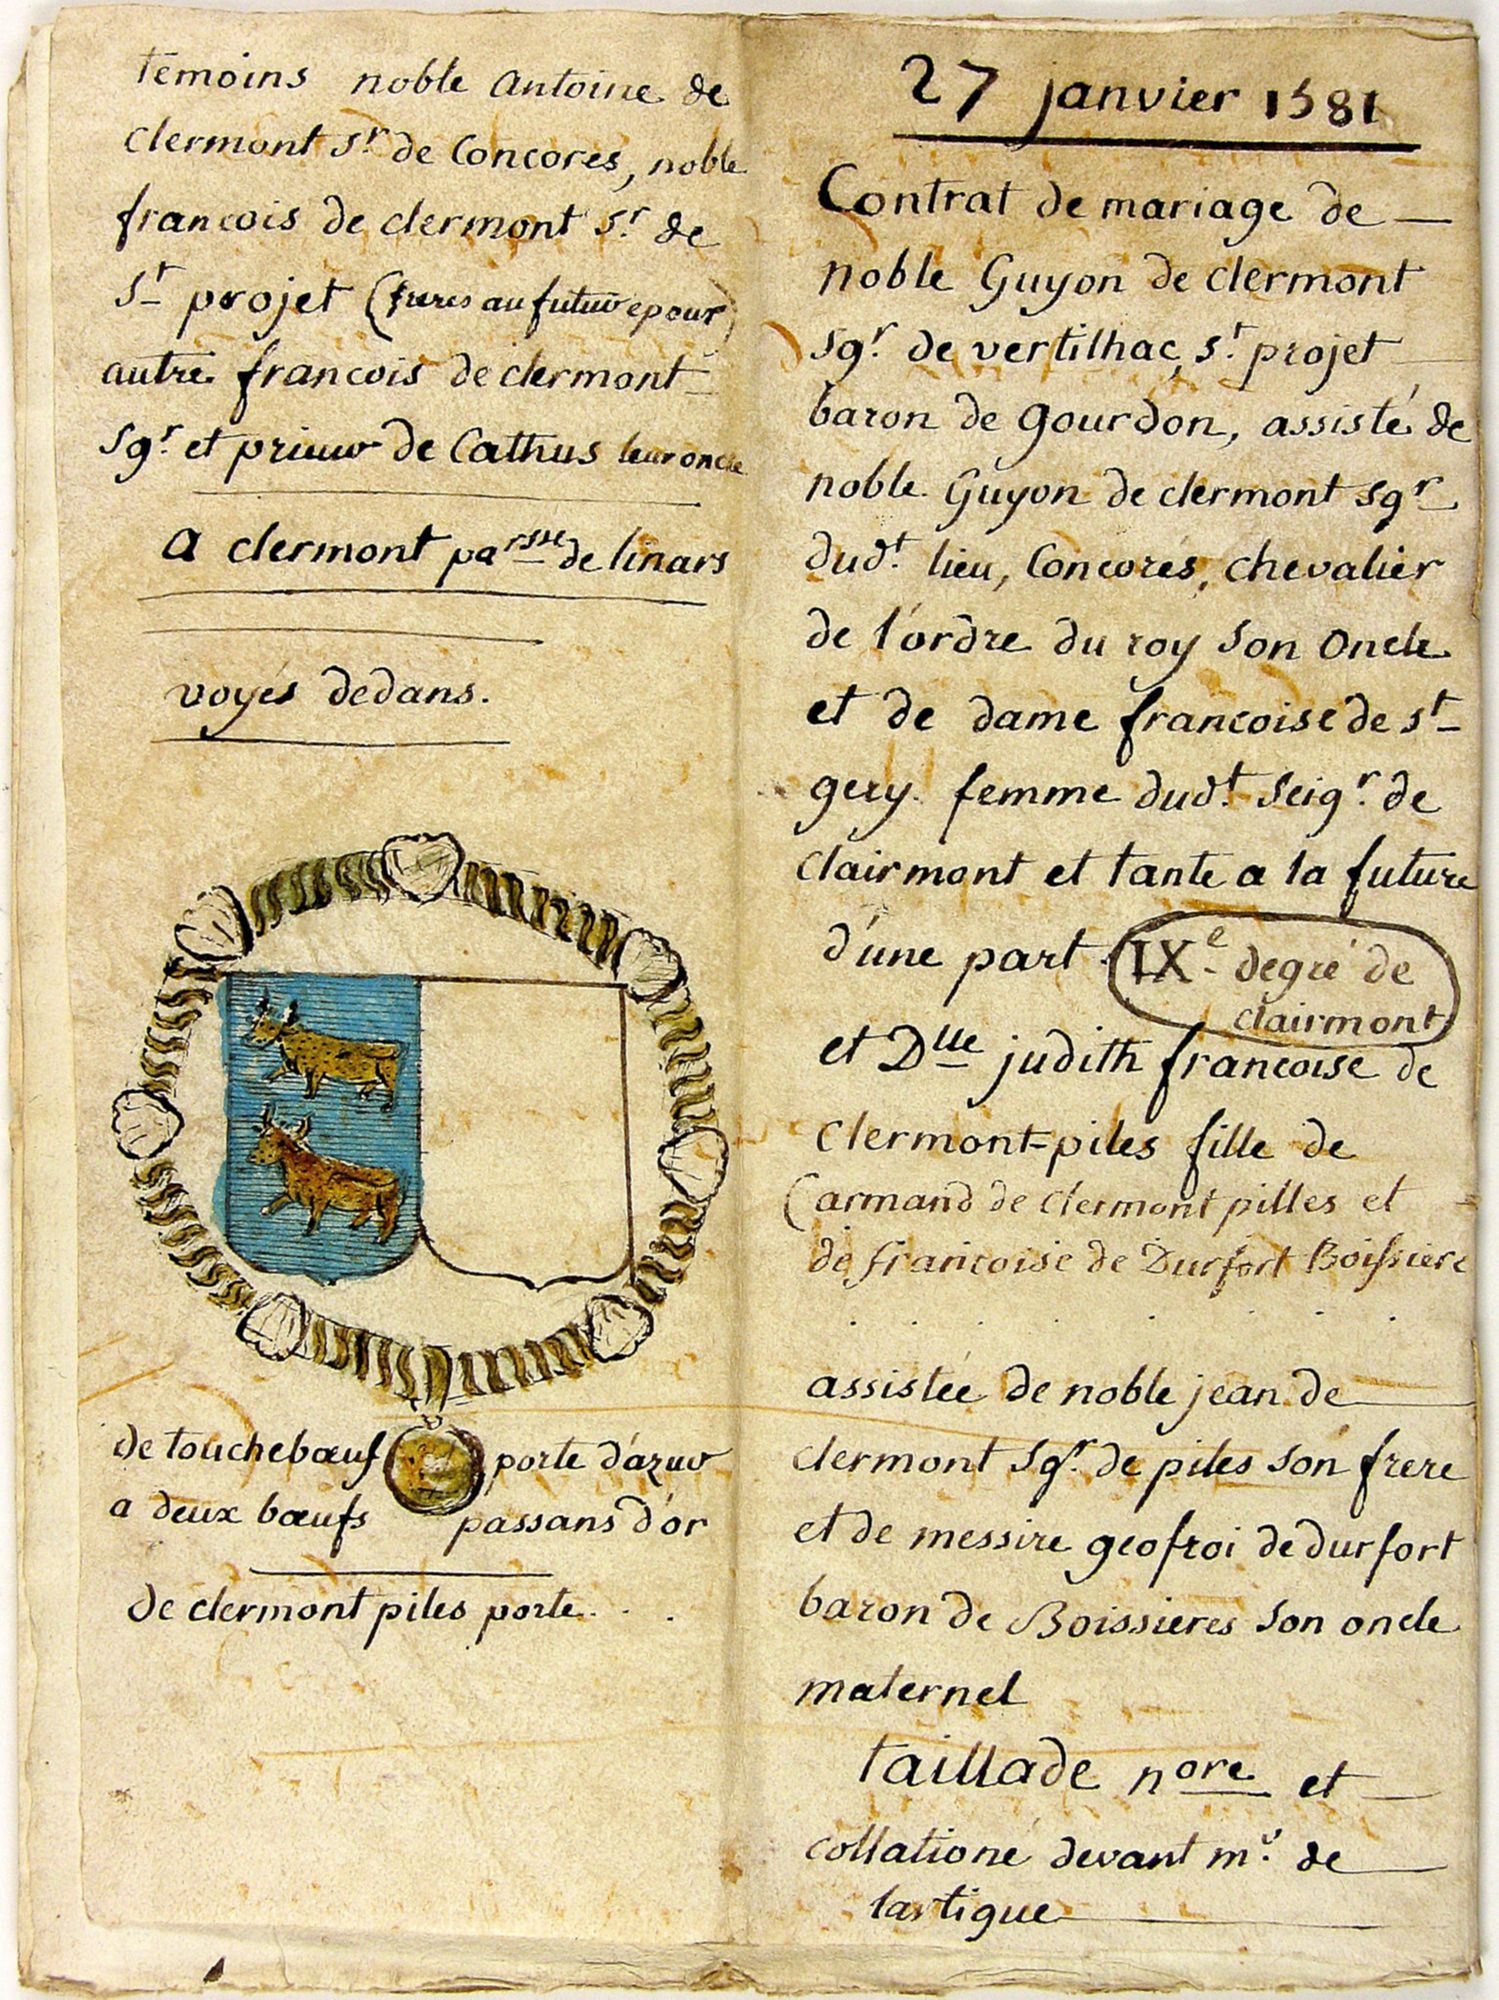 temoins noble antoine de
clermont sr de Concores, noble
francois de clermont sr. de
St projet (freres au futur epour)
autre francois de clermont
sgr. et prieur de Cathus leur oncle
a clermont parsse de linars
voyés dedans.
de touchebœuf porte d'azur
a deux bœufs passans d'or
de clermont piles porte. . .
27 janvier 1581
Contrat de mariage de
noble Guyon de clermont
sgr. de vertilhac, st. projet
baron de gourdon, assisté de
noble Guyon de clermont sgr
dudt. lieu, Concorés, chevalier
de l'ordre du roy son oncle
et de dame francoise de st
gery femme dudt. seigr. de
clairmont et tante a la future
d'une part. IXe degré de
clairmont
et Dlle judith francoise de
Clermont-piles fille de
(armand de clermont pilles et
de francoise de Durfort Boissiere
assistée de noble jean de
clermont sgr. de piles son frere
et de messire geofroi de durfort
baron de Boissieres son oncle
maternel
taillade nore et
collationé devant mr. de
lartigue